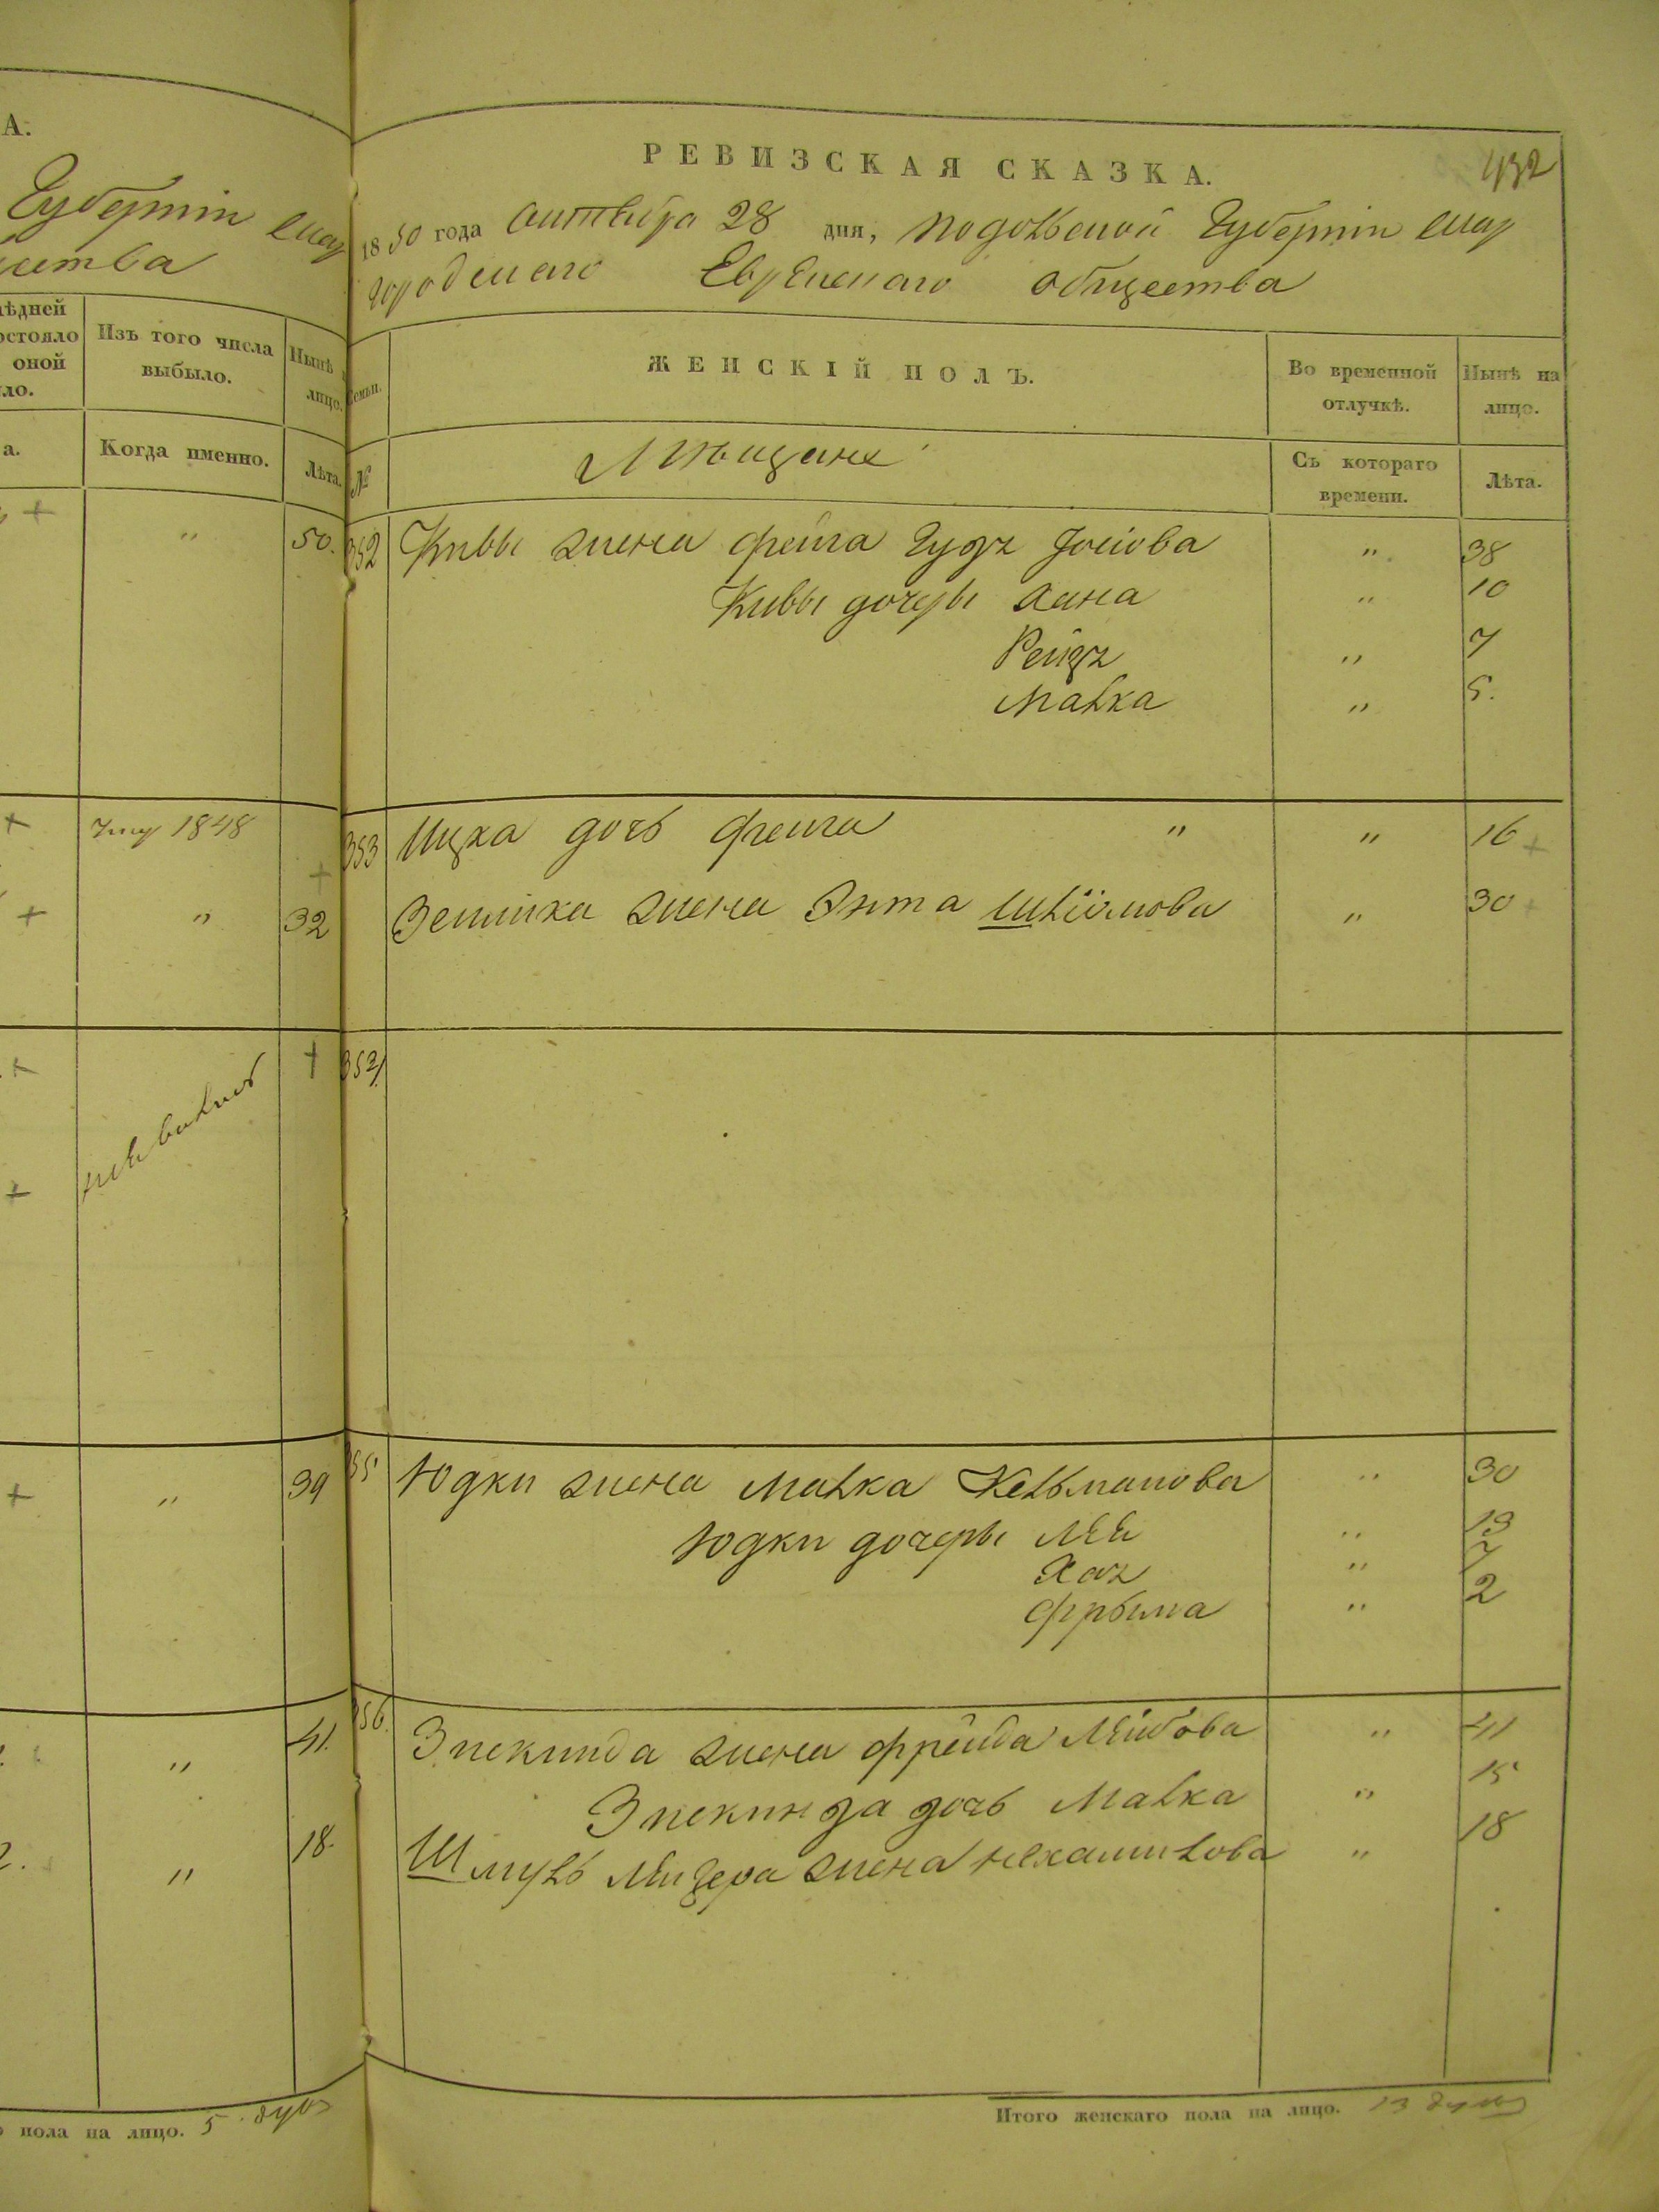 А.
Губерніи Шар
ества
ѣдней
остояло
оной
ло.
Изъ того числа
выбыло.
Нынѣ
лицо.
а.
Когда именно.
Лѣта.
+ " 50.
+ 1848 +
+ " 32
+ +
+
+ " 39
" 41.
" 18.
пола на лицо. 5 душ
РЕВИЗСКАЯ СКАЗКА.
432
1850 года Октября 28 дня, Подольской Губерніи Шар
городскаго Еврейскаго общества
Семьи.
ЖЕНСКІЙ ПОЛЪ.
Во временной
отлучкѣ.
Нынѣ на
лицо.
№
Мѣщане
Съ котораго
времени.
Лѣта.
352 Кивы жена Фейга Іосіова " 38
Кивы дочеры Хана " 10
Рейзя " 7
Малка " 5.
353 Ицка дочь Фейга " " 16 +
жена Энта Шліомова " 30 +
354
355 Юдки жена Малка Кельманова " 30
Юдки дочеры Лея " 13
Хая " 7
Фрыма " 2
356. Зискинда жена Фрейда Лейбова " 41
Зискинда дочь Малка " 15
Шмуль жена " 18
Итого женскаго пола на лицо. 13 душ